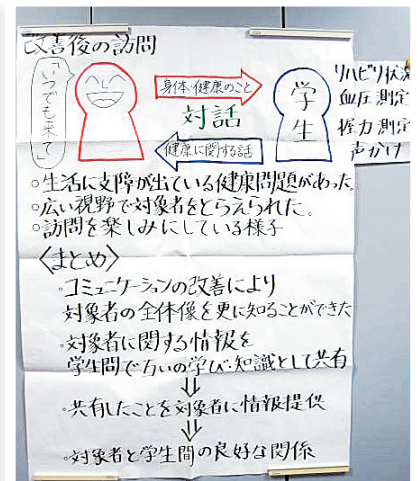 改善後の訪問
「いつでも来て」
身体・健康のこと
対話
健康に関する話
学生
リハビリ状況
血圧測定
握力測定
声かけ
○生活に支障が出ている健康問題があった。
○広い視野で対象者をとらえられた。
○訪問を楽しみにしている様子
〈まとめ〉
・コミュニケーションの改善により
対象者の全体像を更に知ることができた
・対象者に関する情報を
学生間で互いの学び・知識として共有
⇓
・共有したことを対象者に情報提供
⇓
・対象者と学生間の良好な関係